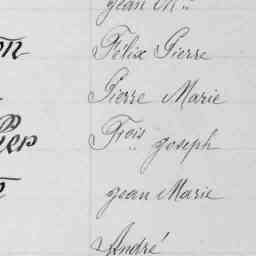 Jean M..
on Félix Pierre
Pierre Marie
ier Frois Joseph
Jean Marie
André